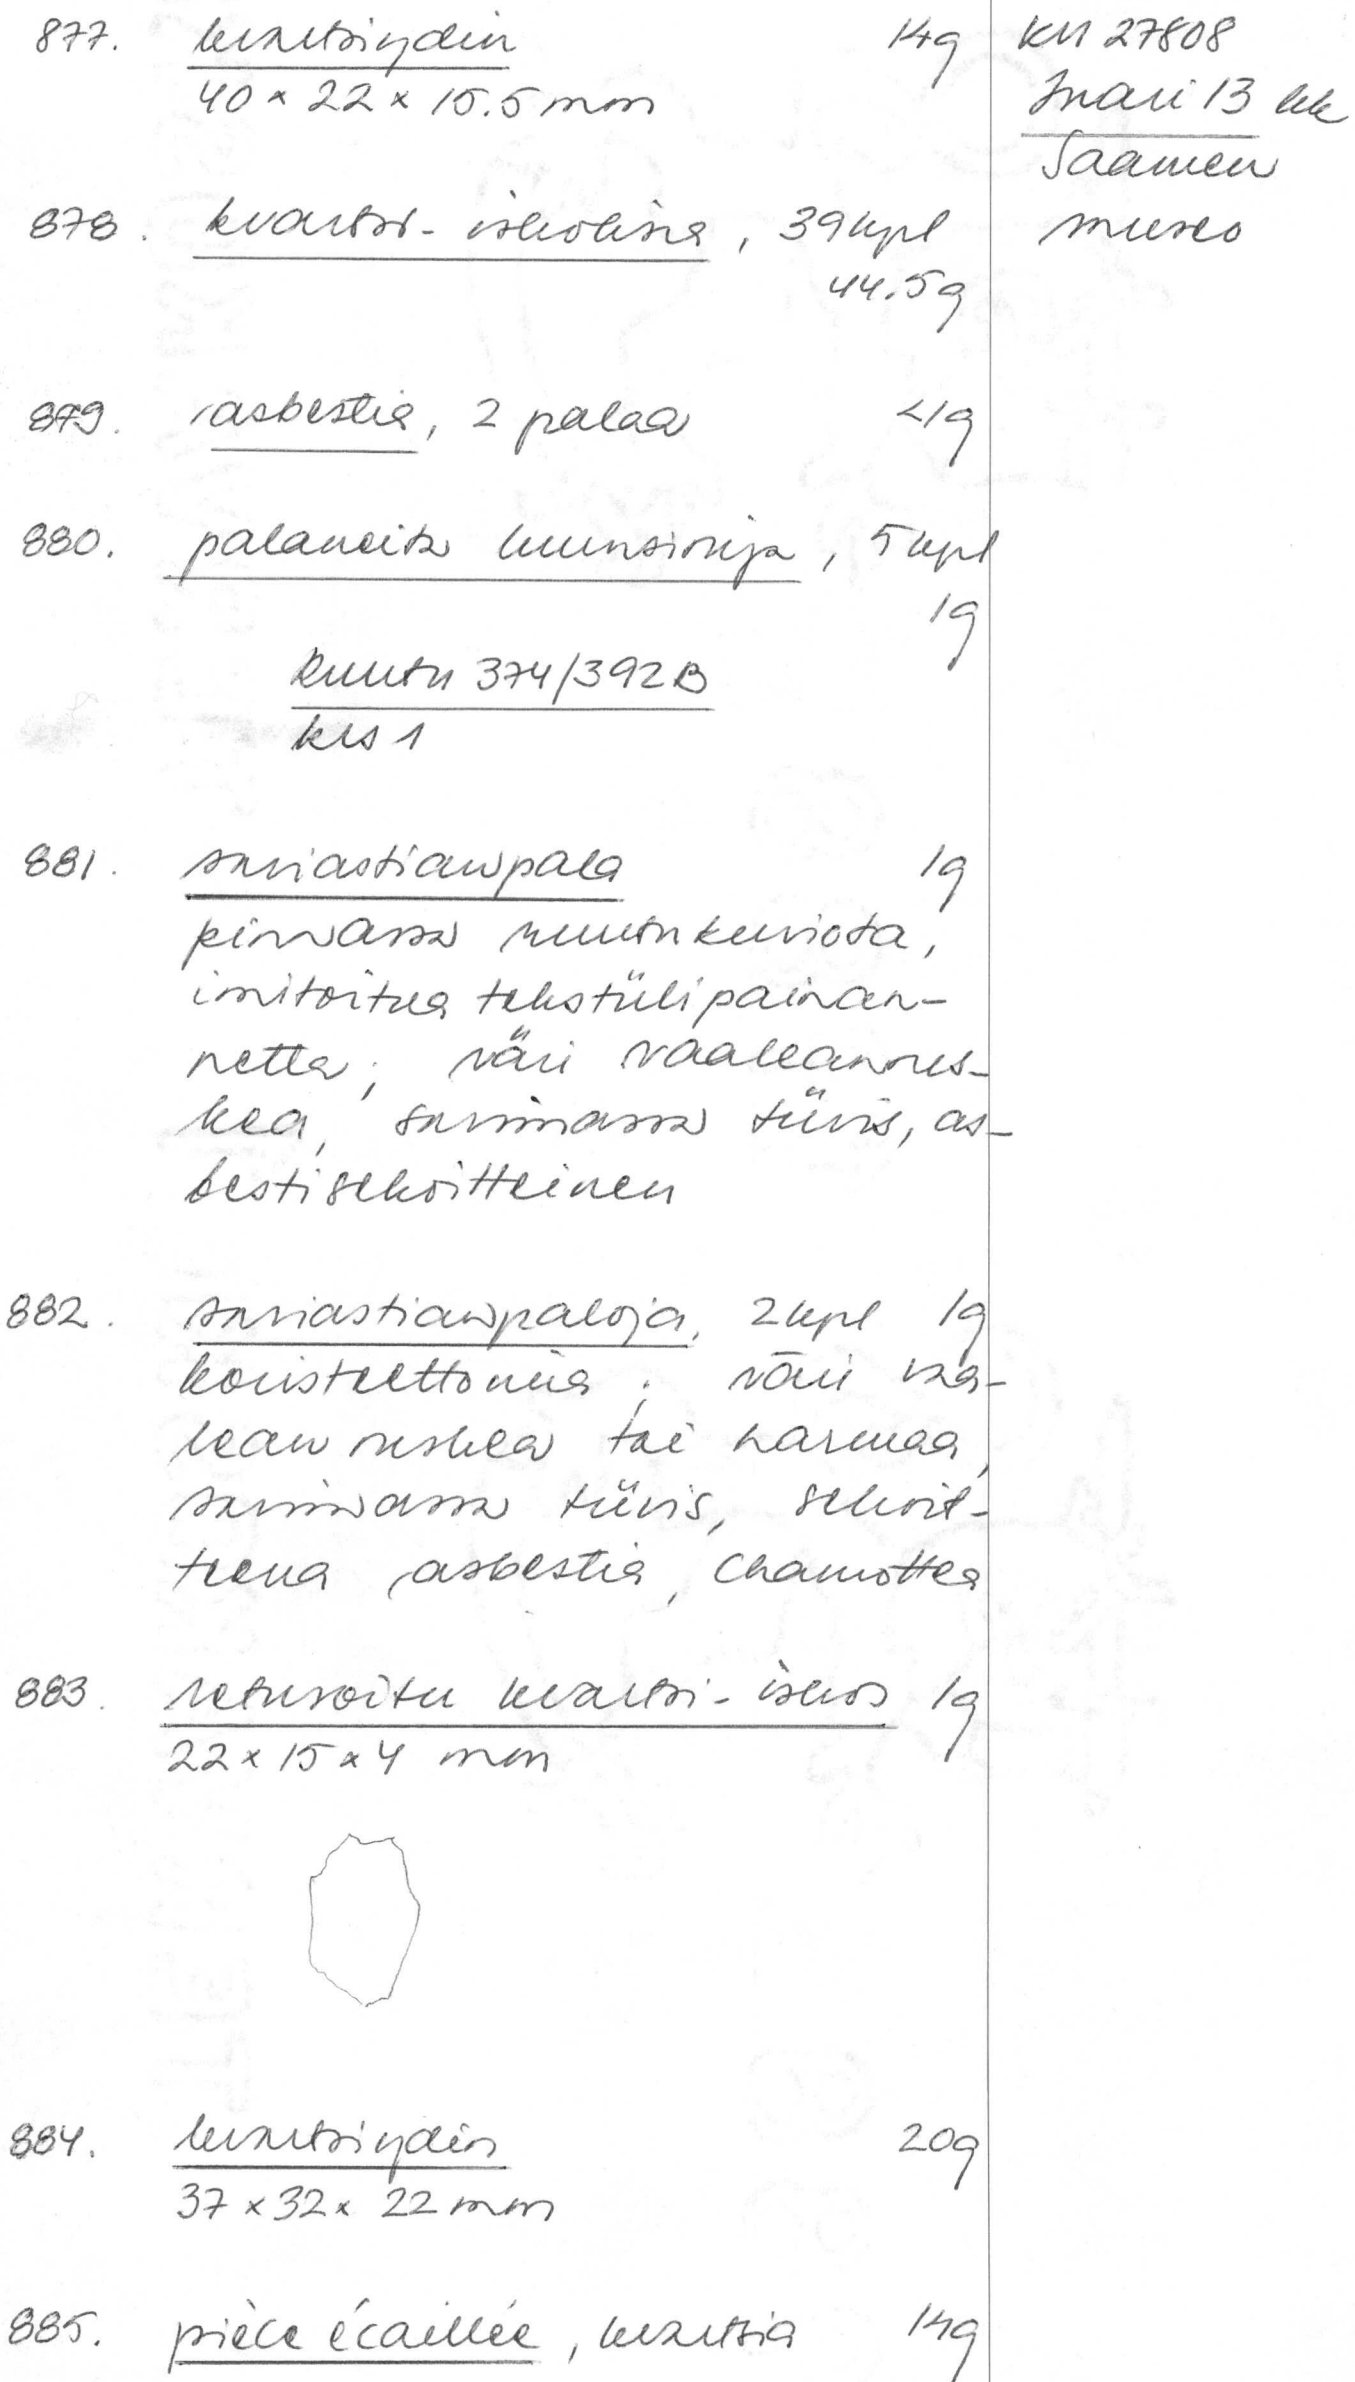 877. kvartsiydin 14g
40 x 22 x 15.5 mm
878. kvartsi-iskoksia, 39 kpl
44.5g
879. asbestia, 2 palaa <1g
880. palaneita luunsiruja, 5 kpl
1g
Ruutu 374/392B
krs 1
881. saviastianpala 1g
pinnassa ruutukuviota,
imitoitua tekstiilipainan-
netta; väri vaaleanrus-
kea, savimassa tiivis, as-
bestisekoitteinen
882. saviastianpaloja, 2 kpl 1g
koristeettomia; väri vaa-
leanruskea tai harmaa,
savimassa tiivis, sekoit-
teena asbestia, chamottea
883. retusoitu kvartsi-iskos 1g
22 x 15 x 4 mm
884. kvartsiydin 20g
37 x 32 x 22 mm
885. pièce écaillée, kvartsia 14g
KM 27808
Inari 13 kk
Saamen
museo